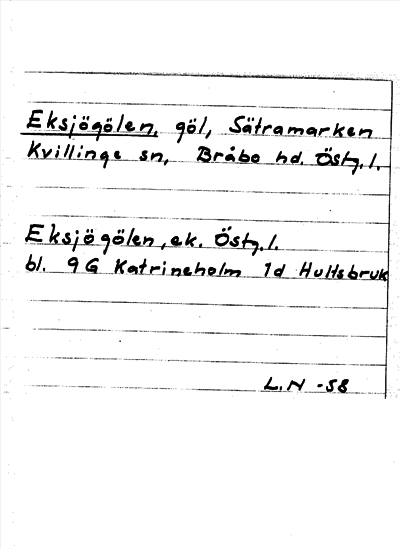 Eksjögölen, göl, Sätramarken
Kvillinge sn, Bråbo hd. Östg. l.
Eksjögölen, ek. Östg. l.
bl. 9 G Katrineholm 1d Hultsbruk
L. N -58